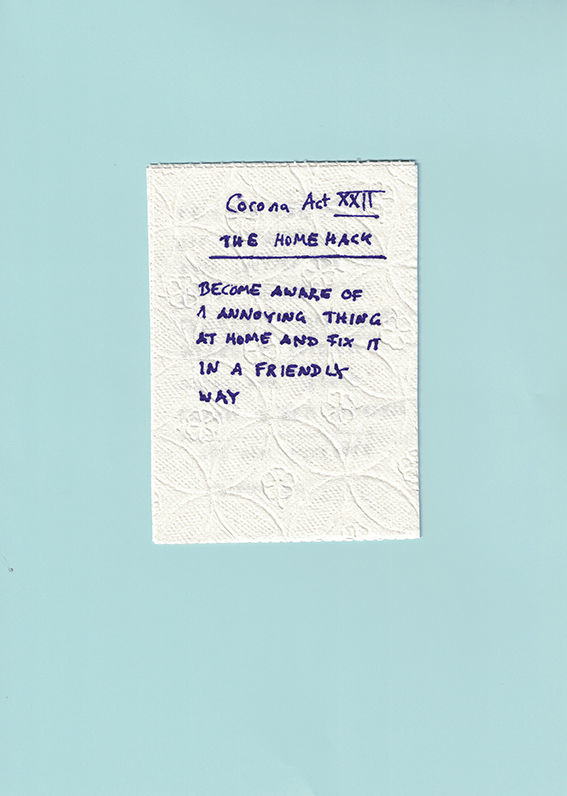 Corona Act XXII
THE HOME HACK
BECOME AWARE OF
1 ANNOYING THING
AT HOME AND FIX IT
IN A FRIENDLY
WAY